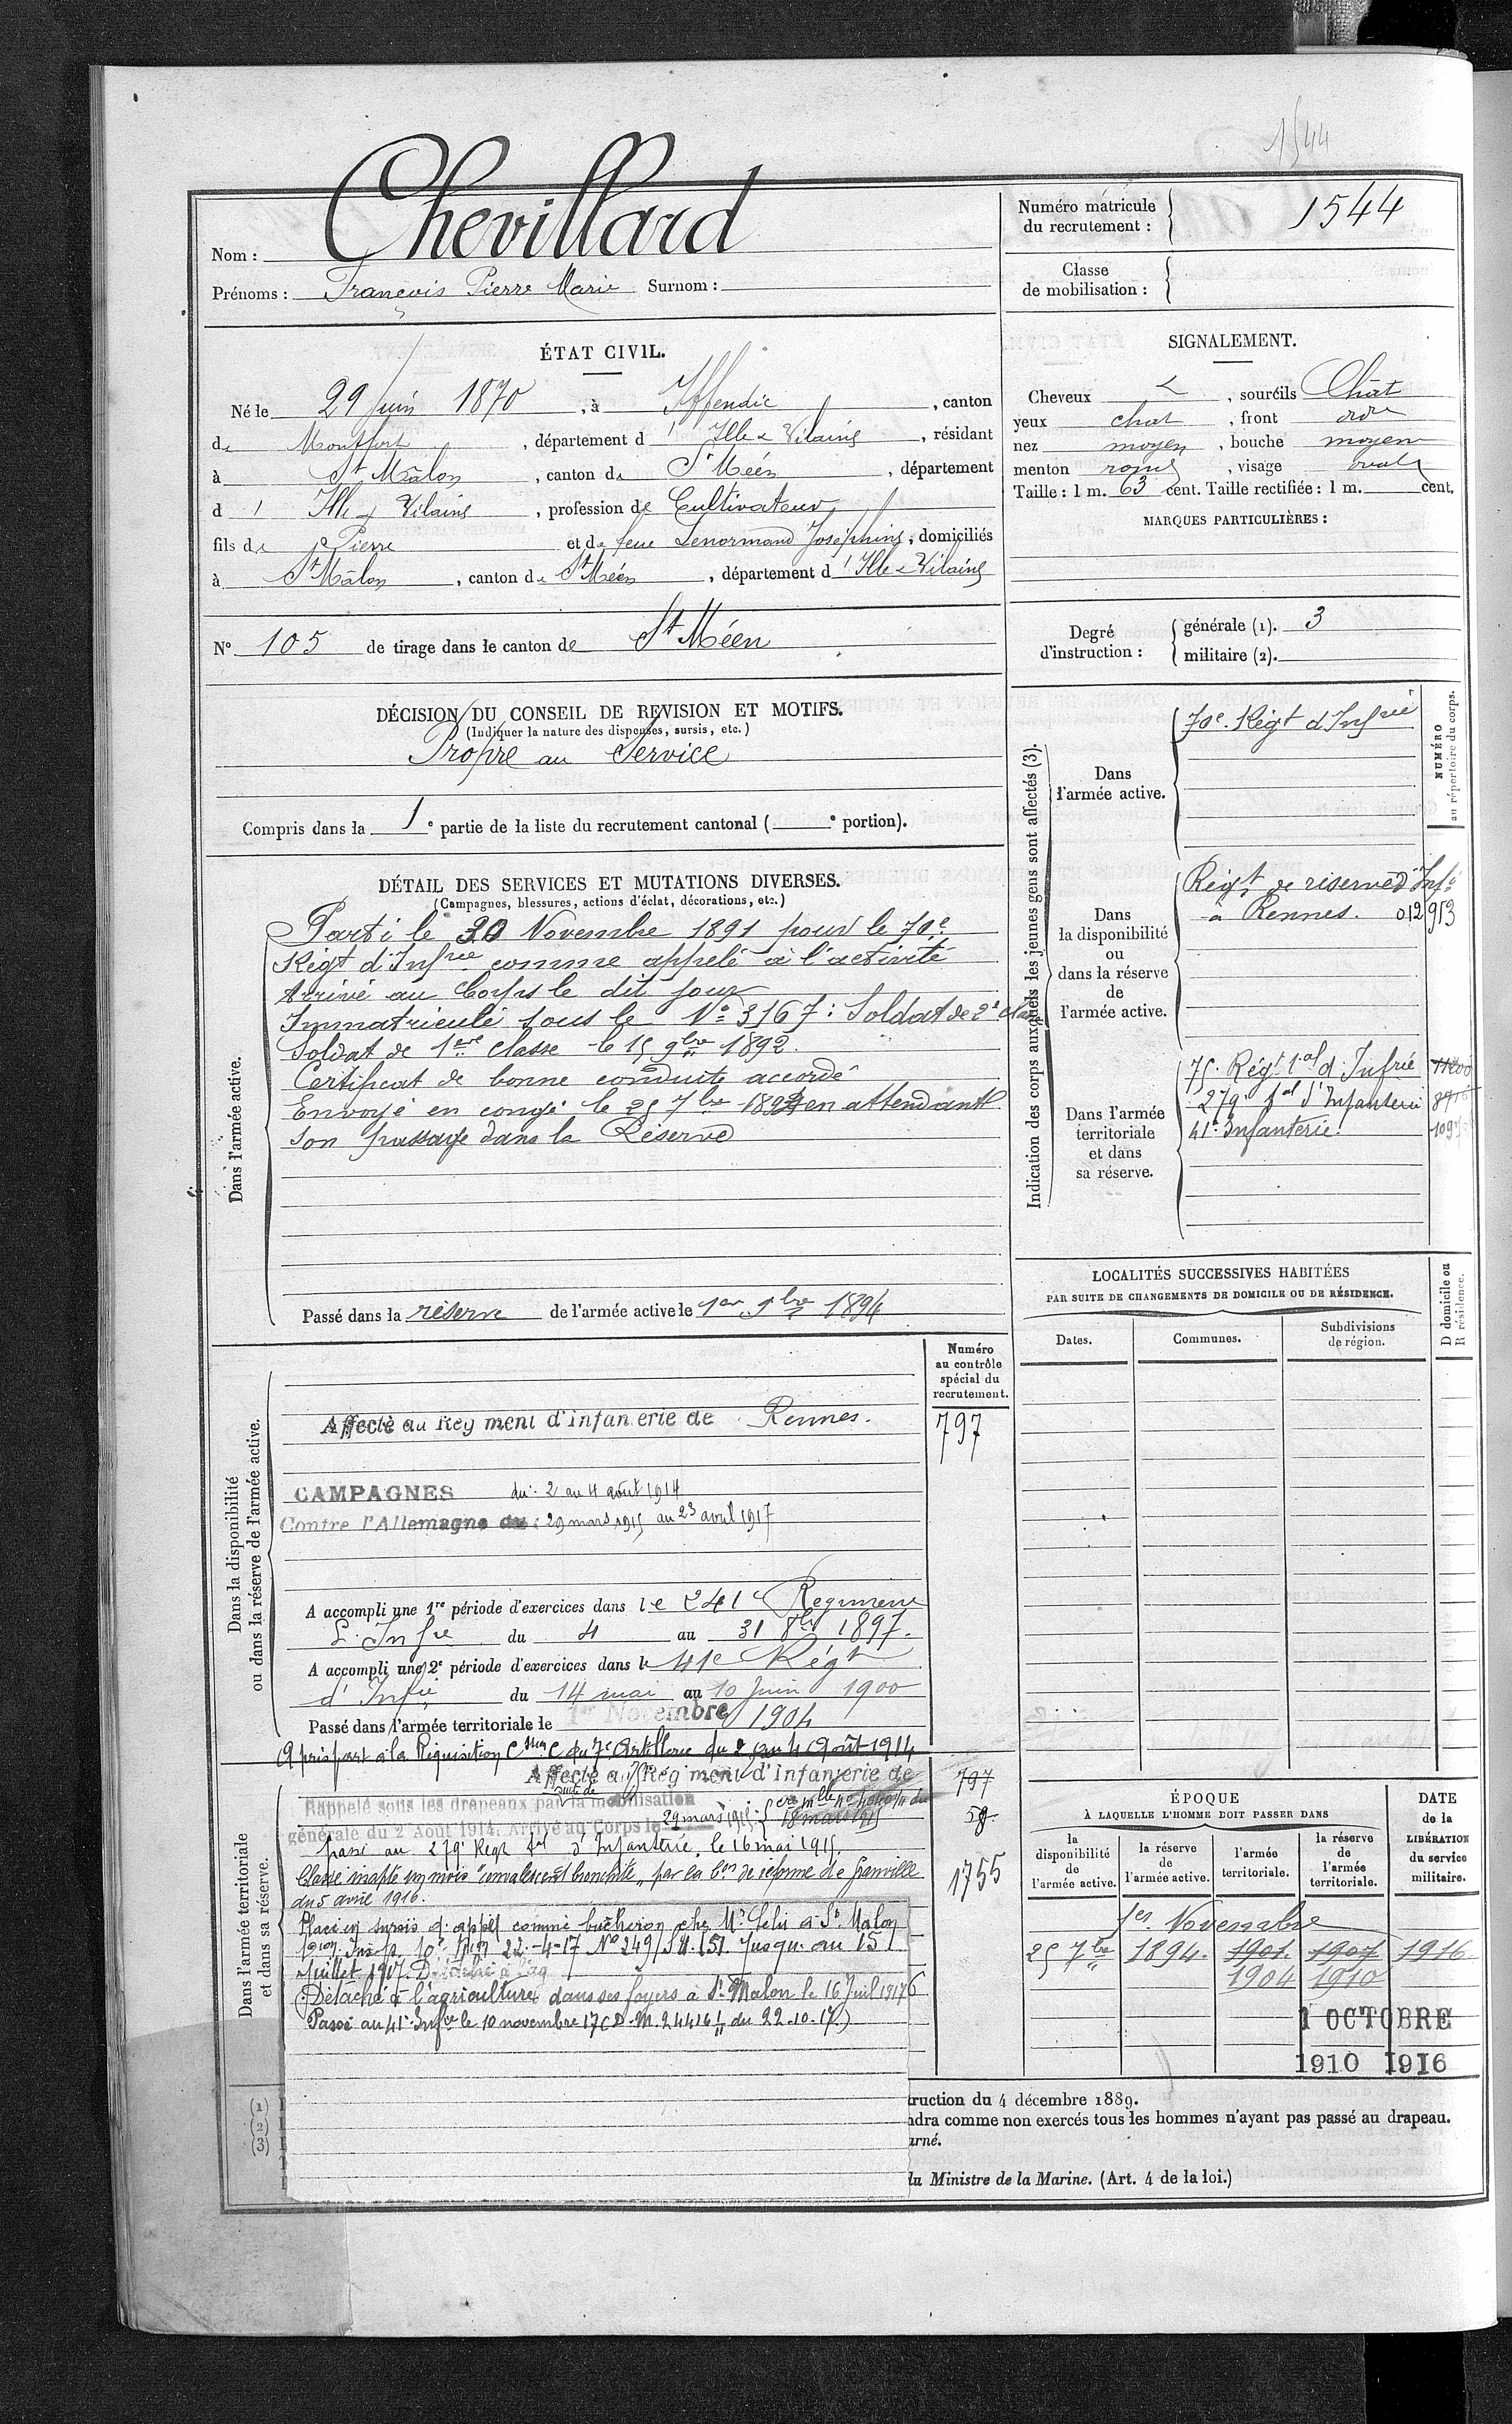 1544
Nom : Chevillard
Prénoms : François Pierre Marie Surnom :
Numéro matricule du recrutement : 1544
Classe de mobilisation :
ÉTAT CIVIL.
Né le 29 juin 1870, à Iffendic, canton
de Montfort, département d'Ille & Vilaine, résidant
à St Mâlon, canton de St Méen, département
d'Ille & Vilaine, profession de Cultivateur
fils de Pierre et de feue Lenormand Joséphine, domiciliés
à St Mâlon, canton de St Méen, département d'Ille & Vilaine
SIGNALEMENT.
Cheveux, sourcils Chat
yeux chat, front ordre
nez moyen, bouche moyen
menton rond, visage ovale
Taille : 1 m. 63 cent. Taille rectifiée : 1 m. cent.
MARQUES PARTICULIÈRES :
N° 105 de tirage dans le canton de St Méen
Degré d'instruction : générale (1). 3
militaire (2).
DÉCISION DU CONSEIL DE REVISION ET MOTIFS.
(Indiquer la nature des dispenses, sursis, etc.)
Propre au Service
Compris dans la 1e partie de la liste du recrutement cantonal ( e portion).
DÉTAIL DES SERVICES ET MUTATIONS DIVERSES.
(Campagnes, blessures, actions d'éclat, décorations, etc.)
Dans l'armée active.
Parti le 20 Novembre 1891 pour le 70e
Régt d'Infrie comme appelé à l'activité
Arrivé au Corps le dit jour
Immatriculé sous le No 3167 : Soldat de 2e classe
Soldat de 1ère classe le 15 9bre 1892.
Certificat de bonne conduite accordé
Envoyé en congé le 25 7bre 1894 en attendant
son passage dans la Réserve
Passé dans la réserve de l'armée active le 1er 9bre 1894
Indication des corps auxquels les jeunes gens sont affectés (3).
NUMÉRO au répertoire du corps.
Dans l'armée active.
70e Régt d'Infrie
Dans la disponibilité ou dans la réserve de l'armée active.
Régt de réserve d'Infie
à Rennes. 012953
Dans l'armée territoriale et dans sa réserve.
75e Régt tal d'Infrie
279e tal d'Infanterie
41e Infanterie.
LOCALITÉS SUCCESSIVES HABITÉES
PAR SUITE DE CHANGEMENTS DE DOMICILE OU DE RÉSIDENCE.
Dates. Communes. Subdivisions de région. D domicile ou R résidence.
Dans la disponibilité ou dans la réserve de l'armée active.
Numéro au contrôle spécial du recrutement.
Affecté au Régiment d'infanterie de Rennes. 797
CAMPAGNES du 2 au 4 août 1914
Contre l'Allemagne du : 29 mars 1915 au 23 avril 1917
A accompli une 1re période d'exercices dans le 241e Régiment
d'Infie du 4 au 31 8bre 1897.
A accompli une 2e période d'exercices dans le 41e Régt
d'Infie du 14 mai au 10 Juin 1900
Passé dans l'armée territoriale le 1er Novembre 1904
A pris part à la Réquisition du 7e Artillerie du 2 au 4 Août 1914
Dans l'armée territoriale et dans sa réserve.
Affecté au Régiment d'Infanterie de 797
Rappelé sous les drapeaux par suite de la mobilisation
générale du 2 Août 1914. Arrivé au Corps le 29 mars 1915 18 mars 1915
passé au 279e Régt tal d'Infanterie, le 16 mai 1915.
Classé inapte un mois "convalescent bronchite" par la Con de réforme de Granville 1755
du 5 avril 1916.
Placé en sursis d'appel comme bucheron chez Mr à St Malon
22-4-17 No 249 Jusqu'au 15
juillet 1917.
Détaché à l'agriculture dans ses foyers à St Malon le 16 Juil 1917
Passé au 41e Infie le 10 novembre 17 (D.M. 24416 du 22.10.17)
ÉPOQUE
À LAQUELLE L'HOMME DOIT PASSER DANS
la disponibilité de l'armée active. la réserve de l'armée active. l'armée territoriale. la réserve de l'armée territoriale.
DATE de la LIBÉRATION du service militaire.
1er Novembre
25 7bre 1894. 1901. 1907 1916
1904 1910
1 OCTOBRE
1910 1916
(1)
(2)
(3)
ruction du 4 décembre 1889.
ndra comme non exercés tous les hommes n'ayant pas passé au drapeau.
urné.
du Ministre de la Marine. (Art. 4 de la loi.)